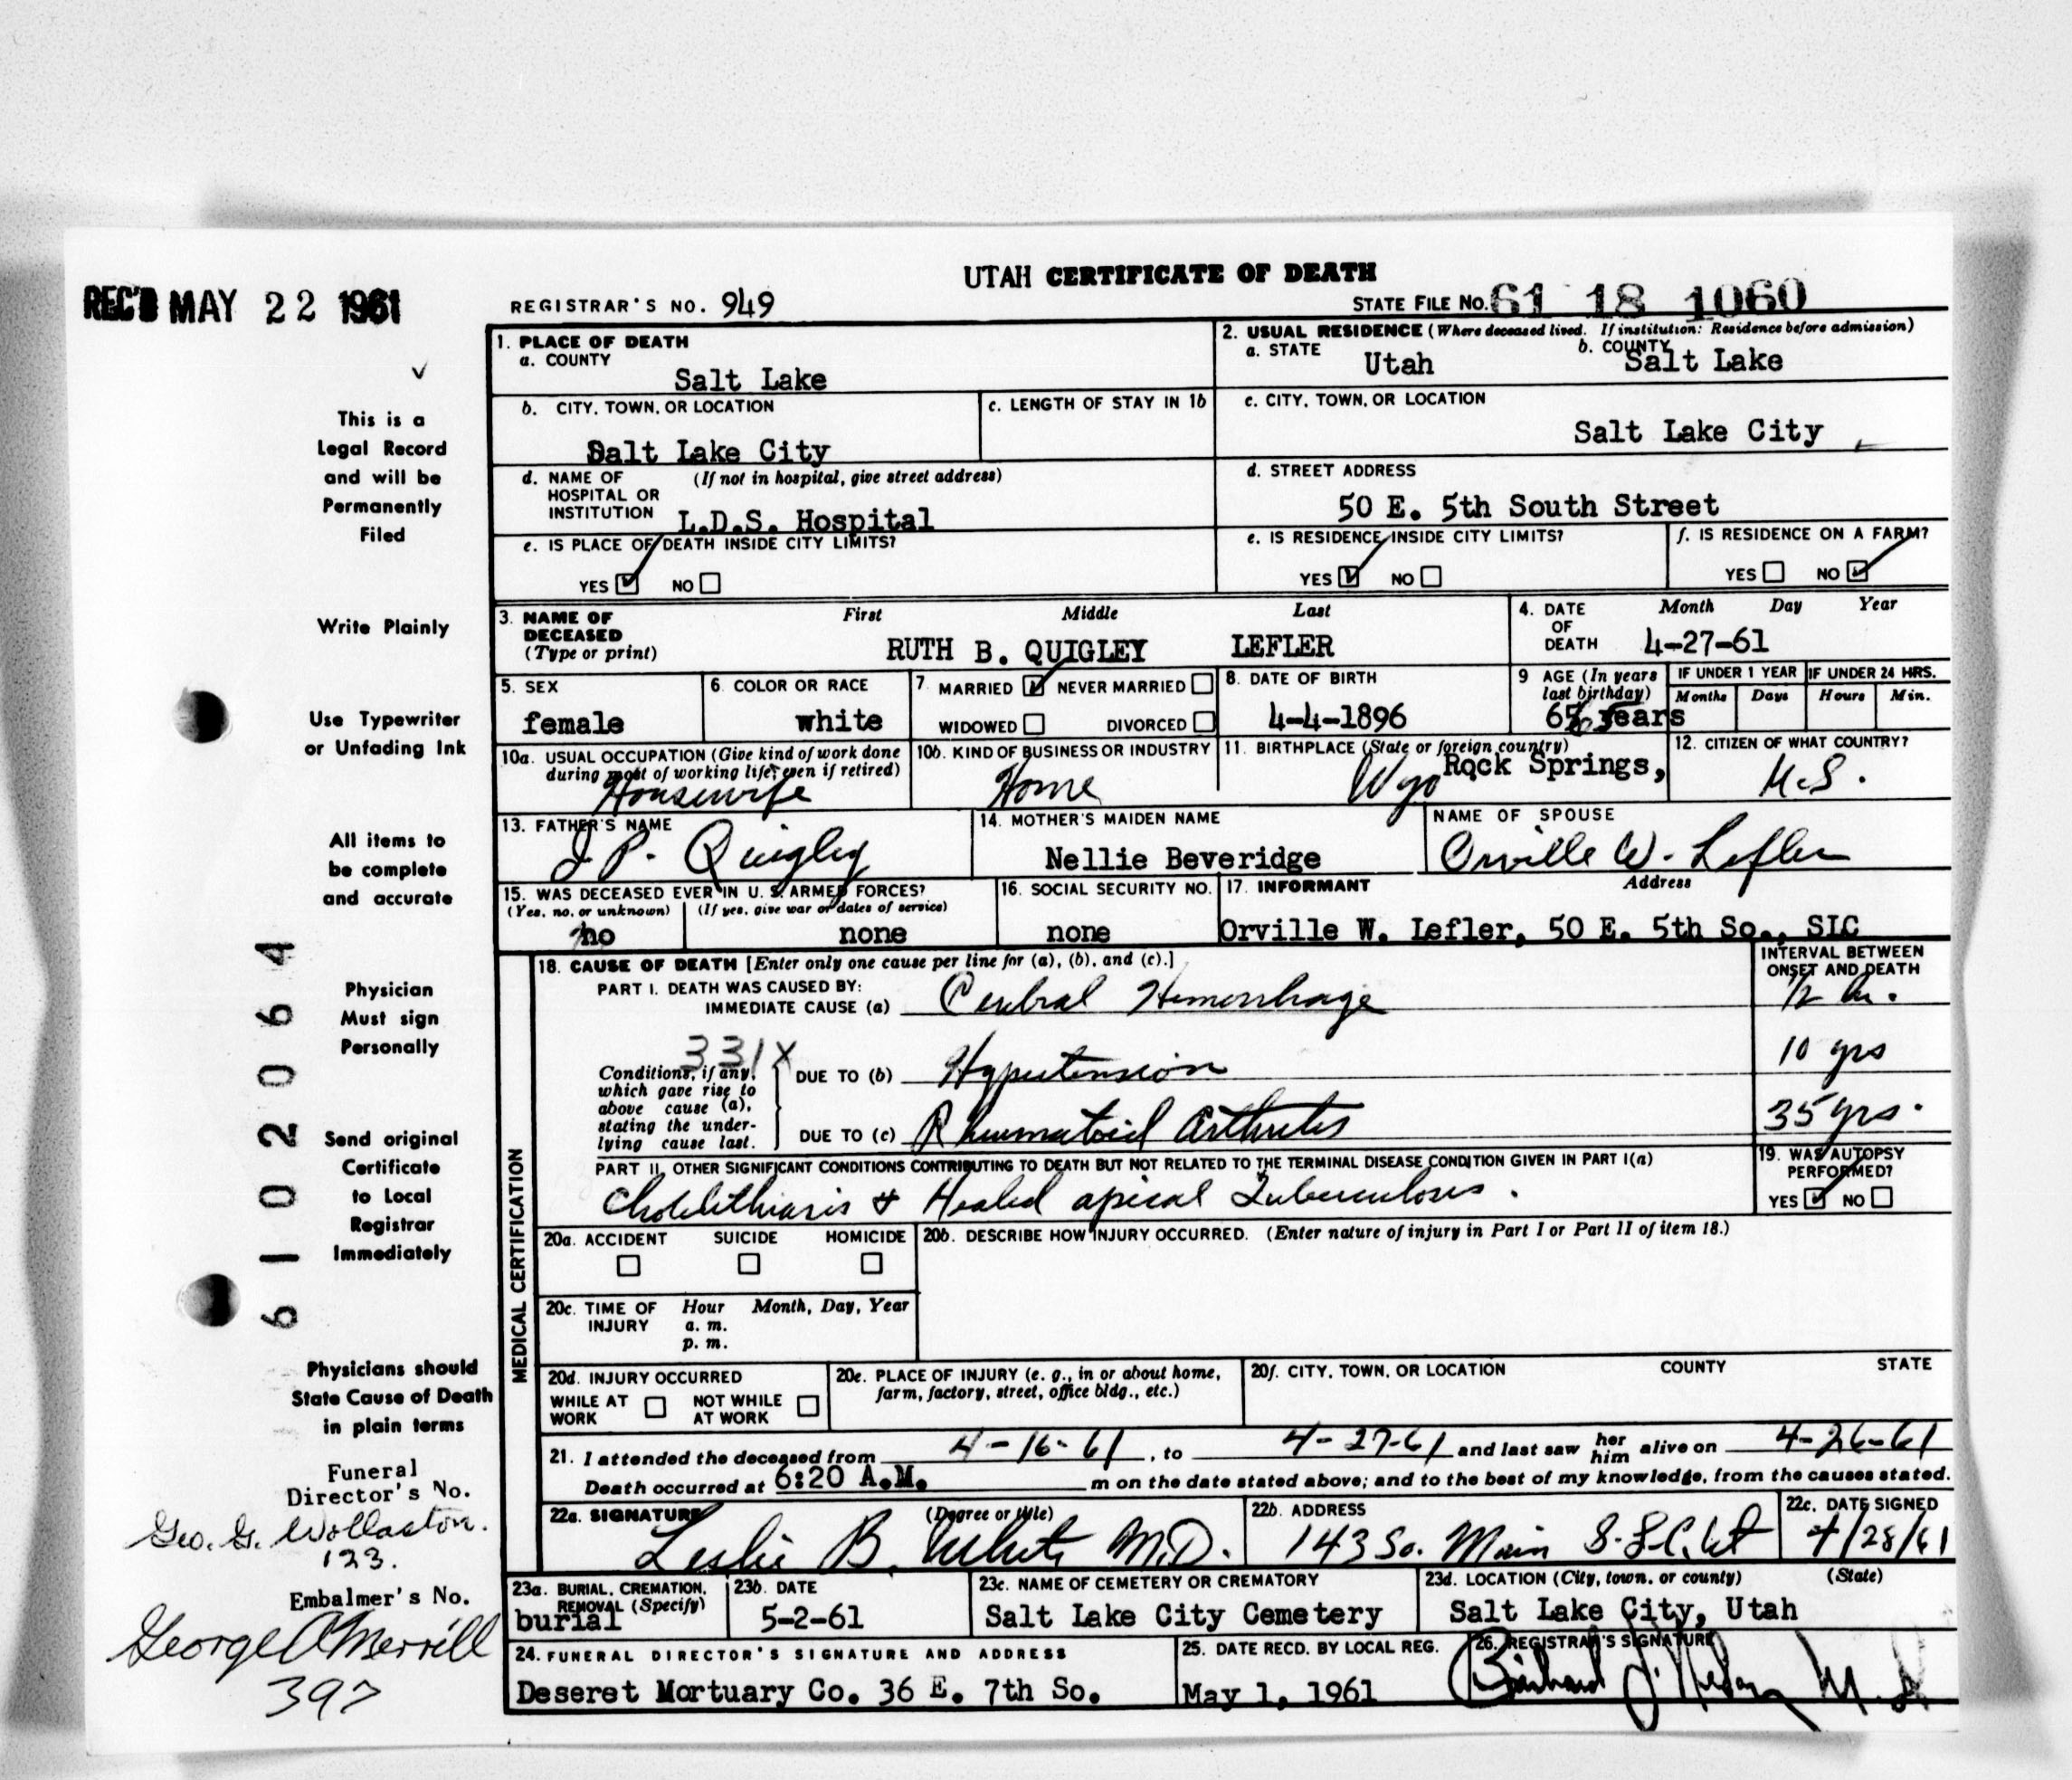 UTAH CERTIFICATE OF DEATH
REC'D MAY 22 1961
REGISTRAR'S NO. 949
STATE FILE NO. 61 18 1060
1. PLACE OF DEATH
a. COUNTY
Salt Lake
2. USUAL RESIDENCE (Where deceased lived. If institution: Residence before admission)
a. STATE Utah b. COUNTY Salt Lake
b. CITY, TOWN, OR LOCATION
Salt Lake City
c. LENGTH OF STAY IN 1b
c. CITY, TOWN, OR LOCATION
Salt Lake City
d. NAME OF HOSPITAL OR INSTITUTION (If not in hospital, give street address)
L.D.S. Hospital
d. STREET ADDRESS
50 E. 5th South Street
e. IS PLACE OF DEATH INSIDE CITY LIMITS?
YES NO
e. IS RESIDENCE INSIDE CITY LIMITS?
YES NO
f. IS RESIDENCE ON A FARM?
YES NO
3. NAME OF DECEASED (Type or print)
First Middle Last
RUTH B. QUIGLEY LEFLER
4. DATE OF DEATH Month Day Year
4-27-61
5. SEX
female
6. COLOR OR RACE
white
7. MARRIED NEVER MARRIED
WIDOWED DIVORCED
8. DATE OF BIRTH
4-4-1896
9 AGE (In years last birthday)
65 years
IF UNDER 1 YEAR
Months Days
IF UNDER 24 HRS.
Hours Min.
10a. USUAL OCCUPATION (Give kind of work done during most of working life, even if retired)
Housewife
10b. KIND OF BUSINESS OR INDUSTRY
Home
11. BIRTHPLACE (State or foreign country)
Rock Springs,
Wyo
12. CITIZEN OF WHAT COUNTRY?
U.S.
13. FATHER'S NAME
J P. Quigley
14. MOTHER'S MAIDEN NAME
Nellie Beveridge
NAME OF SPOUSE
Orville W. Lefler
15. WAS DECEASED EVER IN U. S. ARMED FORCES?
(Yes, no, or unknown) (If yes, give war or dates of service)
no none
16. SOCIAL SECURITY NO.
none
17. INFORMANT Address
Orville W. Lefler, 50 E. 5th So., SLC
MEDICAL CERTIFICATION
18. CAUSE OF DEATH [Enter only one cause per line for (a), (b), and (c).]
INTERVAL BETWEEN ONSET AND DEATH
PART I. DEATH WAS CAUSED BY:
IMMEDIATE CAUSE (a) Cerebral Hemorrhage 1/2 hr.
331X
Conditions, if any, which gave rise to above cause (a), stating the underlying cause last.
DUE TO (b) Hypertension 10 yrs
DUE TO (c) Rheumatoid Arthritis 35 yrs.
PART II. OTHER SIGNIFICANT CONDITIONS CONTRIBUTING TO DEATH BUT NOT RELATED TO THE TERMINAL DISEASE CONDITION GIVEN IN PART I(a)
Cholelithiasis & Healed apical Tuberculosis.
19. WAS AUTOPSY PERFORMED?
YES NO
20a. ACCIDENT SUICIDE HOMICIDE
20b. DESCRIBE HOW INJURY OCCURRED. (Enter nature of injury in Part I or Part II of item 18.)
20c. TIME OF INJURY Hour Month, Day, Year
a. m.
p. m.
20d. INJURY OCCURRED
WHILE AT WORK NOT WHILE AT WORK
20e. PLACE OF INJURY (e. g., in or about home, farm, factory, street, office bldg., etc.)
20f. CITY, TOWN, OR LOCATION COUNTY STATE
21. I attended the deceased from 4-16-61, to 4-27-61 and last saw her him alive on 4-26-61
Death occurred at 6:20 A.M. m on the date stated above; and to the best of my knowledge, from the causes stated.
22a. SIGNATURE (Degree or title)
Leslie B. White M.D.
22b. ADDRESS
143 So. Main S.L.C. Ut
22c. DATE SIGNED
4/28/61
23a. BURIAL, CREMATION, REMOVAL (Specify)
burial
23b. DATE
5-2-61
23c. NAME OF CEMETERY OR CREMATORY
Salt Lake City Cemetery
23d. LOCATION (City, town, or county) (State)
Salt Lake City, Utah
24. FUNERAL DIRECTOR'S SIGNATURE AND ADDRESS
Deseret Mortuary Co. 36 E. 7th So.
25. DATE RECD. BY LOCAL REG.
May 1, 1961
26. REGISTRAR'S SIGNATURE
This is a
Legal Record
and will be
Permanently
Filed
Write Plainly
Use Typewriter
or Unfading Ink
All items to
be complete
and accurate
Physician
Must sign
Personally
Send original
Certificate
to Local
Registrar
Immediately
61 02064
Physicians should
State Cause of Death
in plain terms
Funeral
Director's No.
Geo. G. Wollaston.
123.
Embalmer's No.
George C Merrill
397